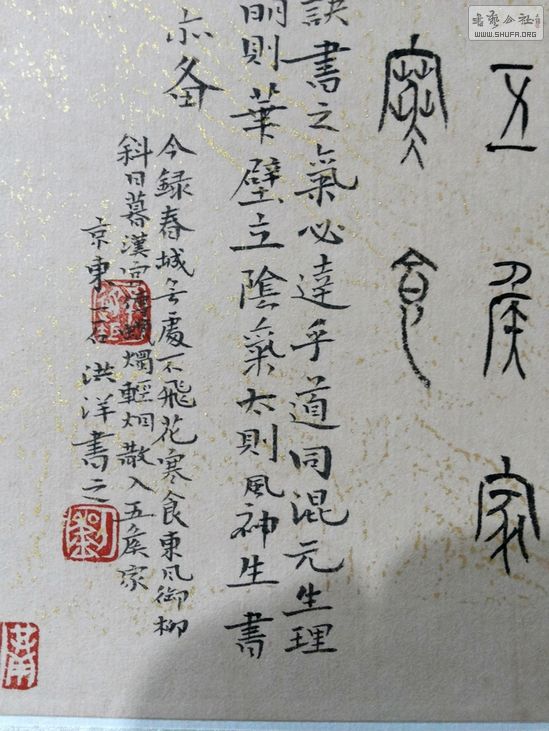 書藝公社
WWW.SHUFA.ORG
五侯家
寒食
訣書之氣必達乎道同混元生理
明則華壁立陰氣太則風神生書
亦备
今録春城无處不飛花寒食東風御柳
斜日暮漢宮傳蠟燭輕烟散入五侯家
京東一石洪洋書之
劉